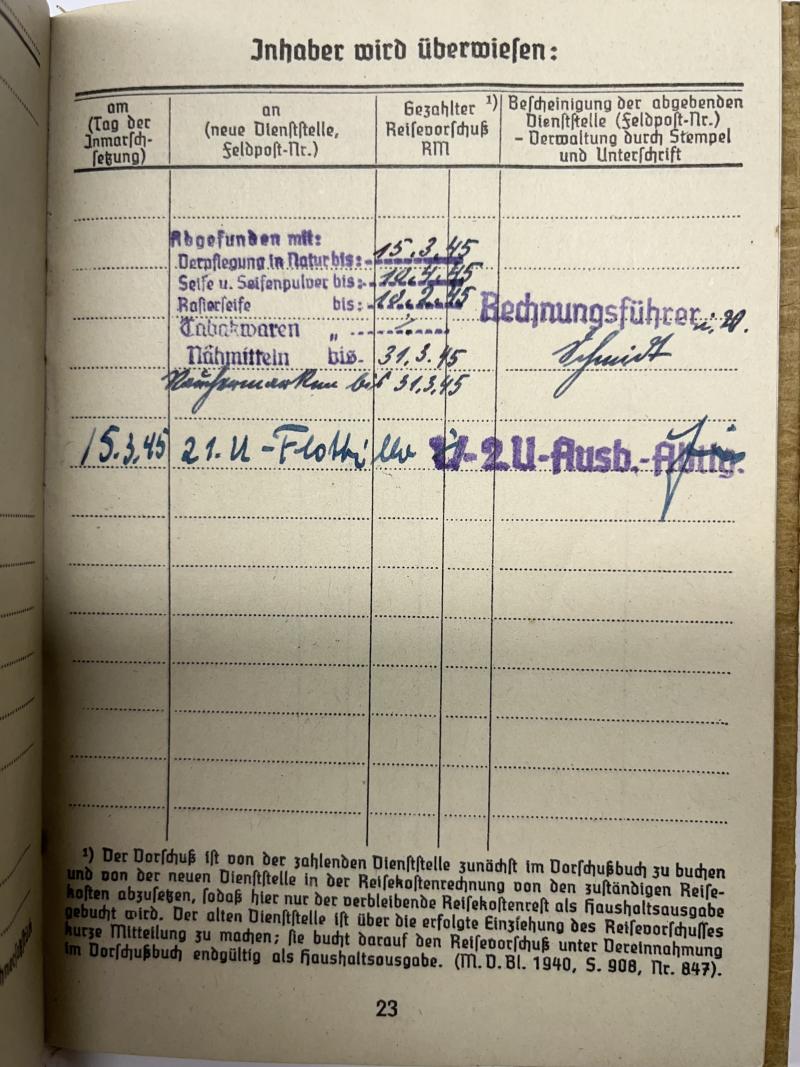 Inhaber wird überwiesen:
am
(Tag der
Inmarsch-
setzung)
an
(neue Dienststelle,
Feldpost-Nr.)
Gezahlter ¹)
Reisevorschuß
RM
Bescheinigung der abgebenden
Dienststelle (Feldpost-Nr.)
- Verwaltung durch Stempel
und Unterschrift
Abgefunden mit:
Verpflegung in Natur bis: 15.3.45
Seife u. Seifenpulver bis:
Rasierseife bis:
Tabakwaren „
Nähmitteln bis 31.3.45
Rauchermarken bis 31.3.45
Rechnungsführer
Schmidt
15.3.45 21. U-Flottille 2U-Ausb.-Abtlg.
¹) Der Vorschuß ist von der zahlenden Dienststelle zunächst im Vorschußbuch zu buchen
und von der neuen Dienststelle in der Reisekostenrechnung von den zuständigen Reise-
kosten abzusetzen, sodaß hier nur der verbleibende Reisekostenrest als Haushaltsausgabe
gebucht wird. Der alten Dienststelle ist über die erfolgte Einziehung des Reisevorschusses
kurze Mitteilung zu machen; sie bucht darauf den Reisevorschuß unter Vereinnahmung
im Vorschußbuch endgültig als Haushaltsausgabe. (M. D. Bl. 1940, S. 908, Nr. 847).
23